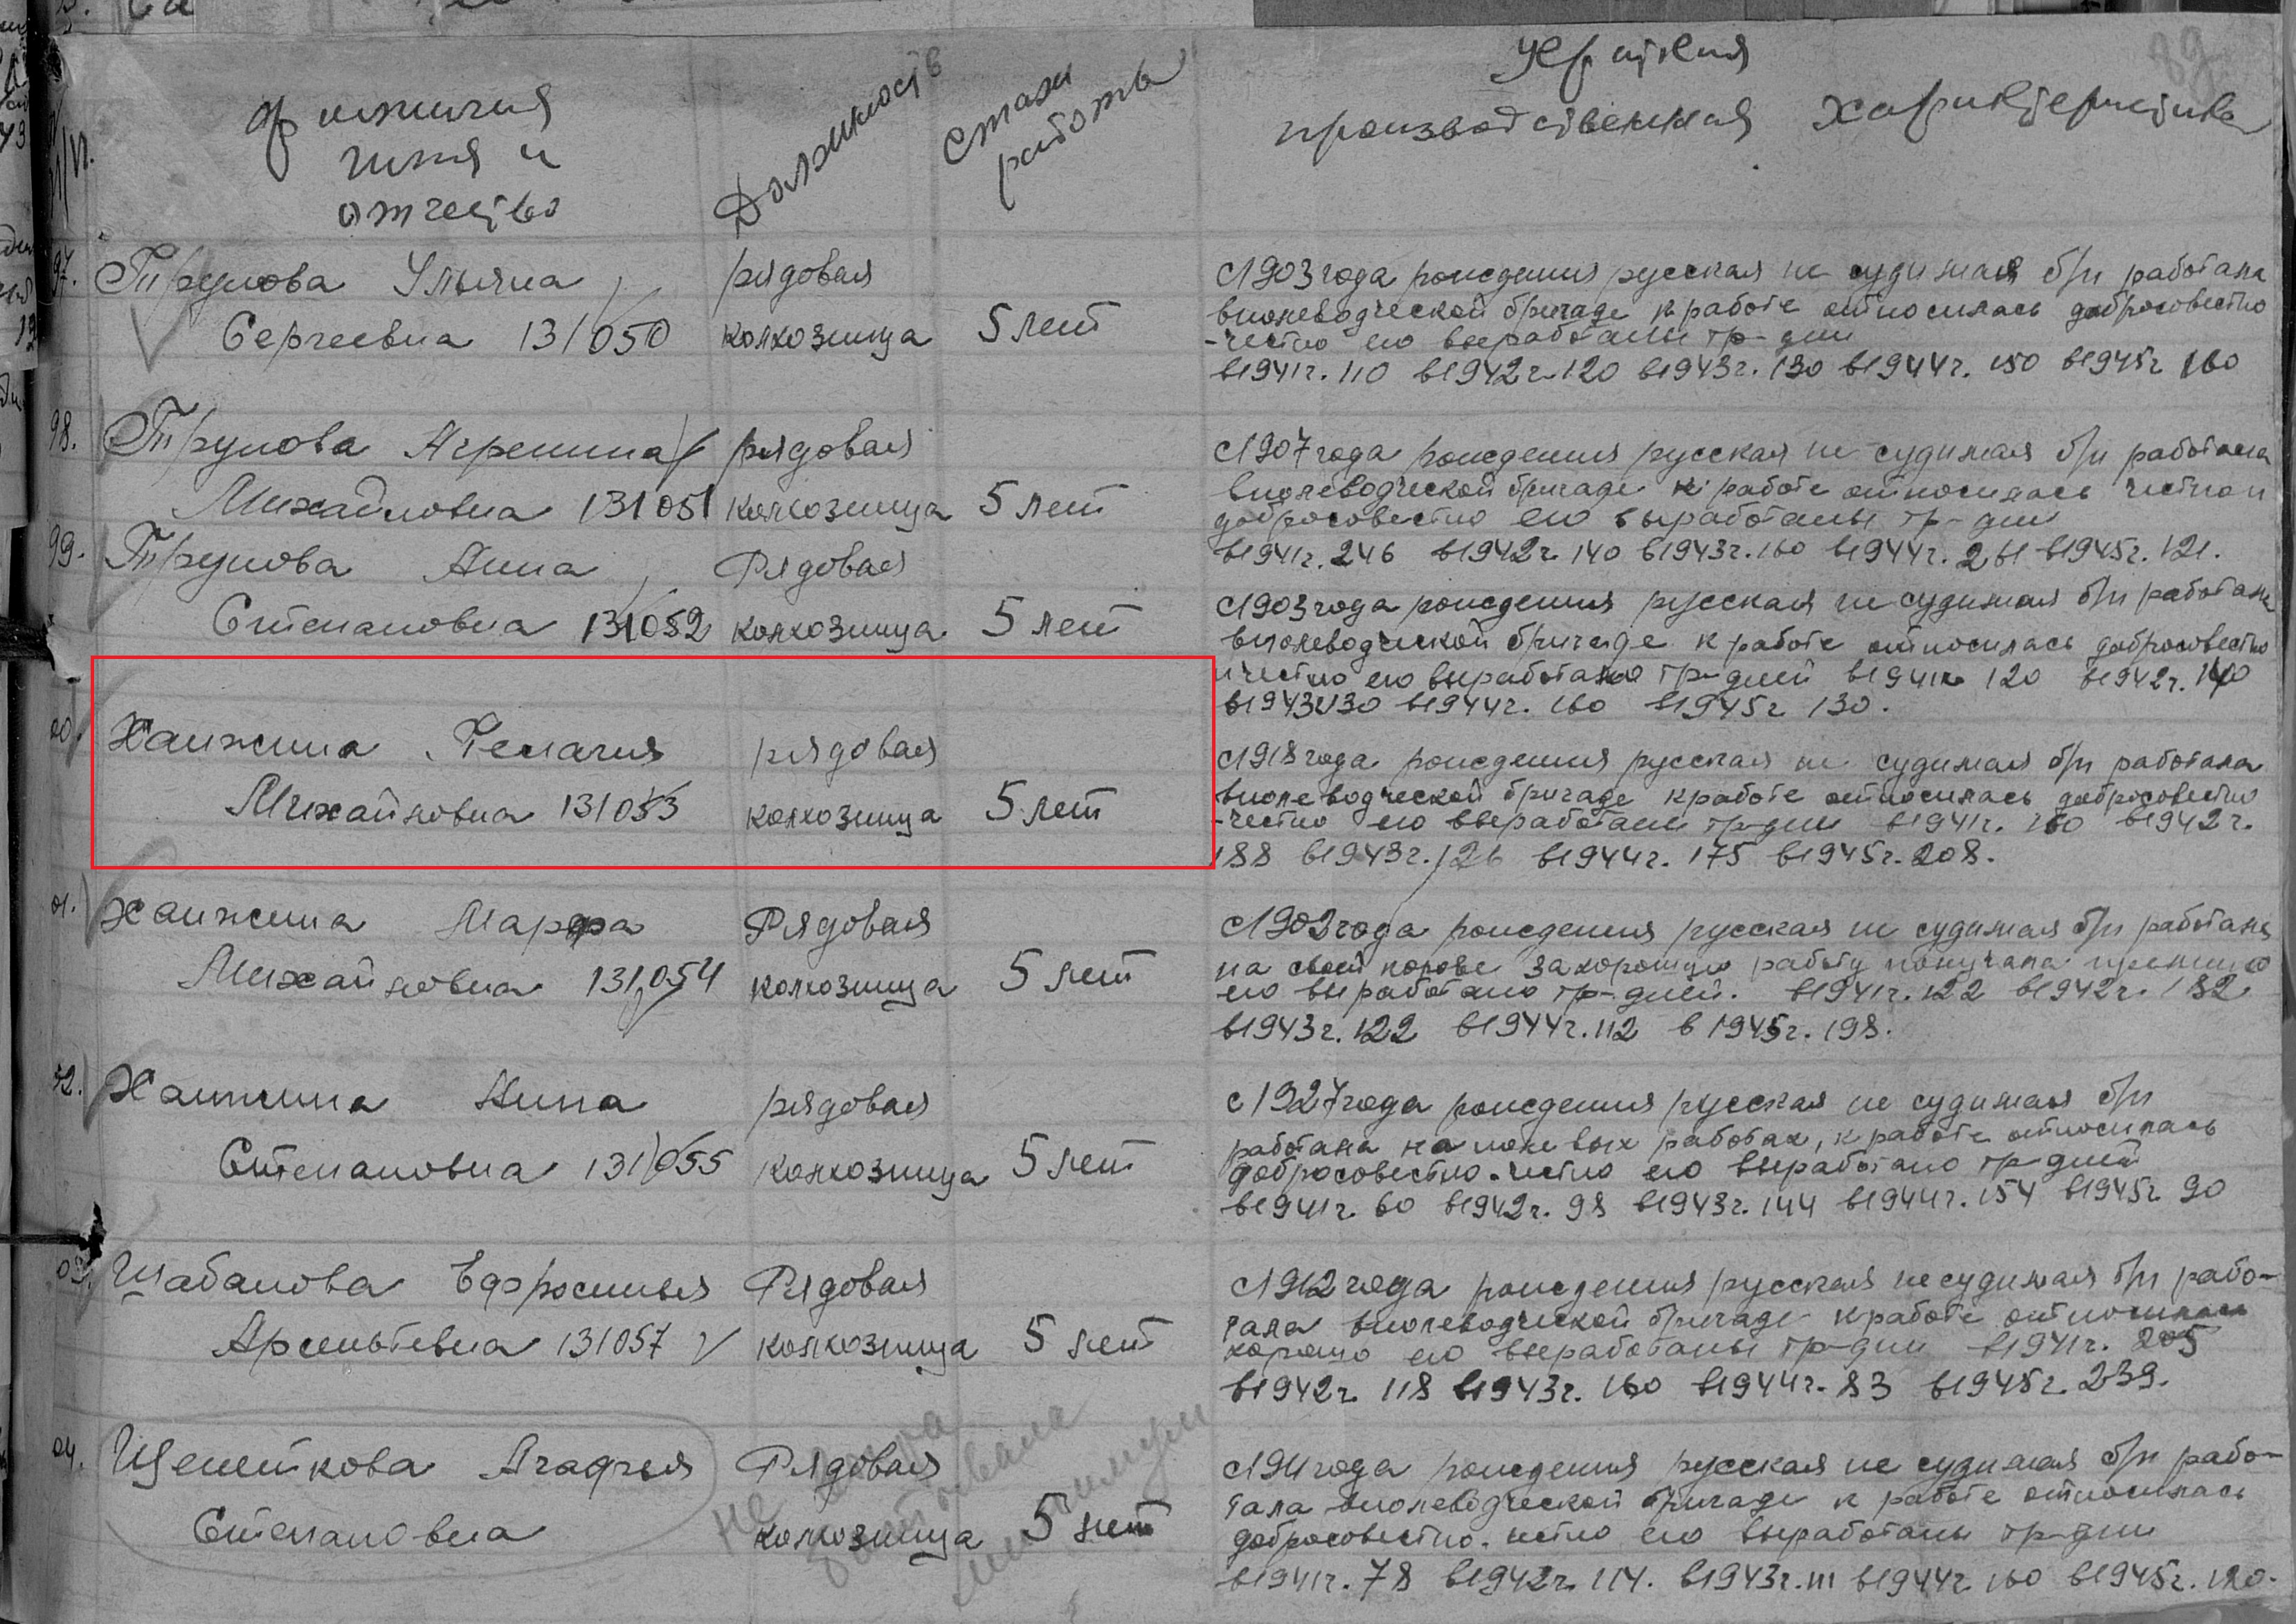 Краткая
производственная характеристика
Фамилия
имя и
отчество
Должность
Стаж
работы
89
97. Трунова Ульяна рядовая
Сергеевна 131050 колхозница 5 лет
с 1903 года рождения русская не судимая б/п работала
в полеводческой бригаде к работе относилась добросовестно
-честно ею выработаны тр-дни
в 1941г. 110 в 1942г. 120 в 1943г. 130 в 1944г. 150 в 1945г 160
98. Трунова Агрепина рядовая
Михайловна 131051 колхозница 5 лет
с 1907 года рождения русская не судимая б/п работала
в полеводческой бригаде к работе относилась честно и
добросовестно ею выработаны тр-дни
в 1941г. 246 в 1942г. 140 в 1943г. 160 в 1944г. 261 в 1945г. 121.
99. Трунова Анна Рядовая
Степановна 131052 колхозница 5 лет
с 1903 года рождения русская не судимая б/п работала
в полеводческой бригаде к работе относилась добросовестно
и честно ею выработано тр-дней в 1941г 120 в 1942г. 140
в 1943г 130 в 1944г. 160 в 1945г 130.
00. Ханжина Пелагия рядовая
Михайловна 131053 колхозница 5 лет
с 1918 года рождения русская не судимая б/п работала
в полеводческой бригаде к работе относилась добросовестно
-честно ею выработаны тр-дни в 1941г. 160 в 1942г.
188 в 1943г. 126 в 1944г. 175 в 1945г. 208.
01. Ханжина Марфа Рядовая
Михайловна 131054 колхозница 5 лет
с 1902 года рождения русская не судимая б/п работала
на своей корове за хорошую работу получала премию
ею выработано тр-дней. в 1941г. 122 в 1942г. 182.
в 1943г. 122 в 1944г. 112 в 1945г. 198.
02. Ханжина Нина рядовая
Степановна 131055 колхозница 5 лет
с 1927 года рождения русская не судимая б/п
работала на полевых работах, к работе относилась
добросовестно-честно ею выработано тр-дней
в 1941г. 60 в 1942г. 98 в 1943г. 144 в 1944г. 154 в 1945г 90
03. Шабанова Ефросинья Рядовая
Арсентьевна 131057 колхозница 5 лет
с 1912 года рождения русская не судимая б/п рабо-
тала в полеводческой бригаде к работе относилась
хорошо ею выработаны тр-дни в 1941г. 205
в 1942г. 118 в 1943г. 160 в 1944г. 83 в 1945г. 239.
04. Щепеткова Агафья Рядовая
Степановна колхозница 5 лет
не выра
батывала
минимум
с 1911 года рождения русская не судимая б/п рабо-
тала в полеводческой бригаде к работе относилась
добросовестно-честно ею выработаны тр-дни
в 1941г. 78 в 1942г. 114. в 1943г. 111 в 1944г. 160 в 1945г. 120.